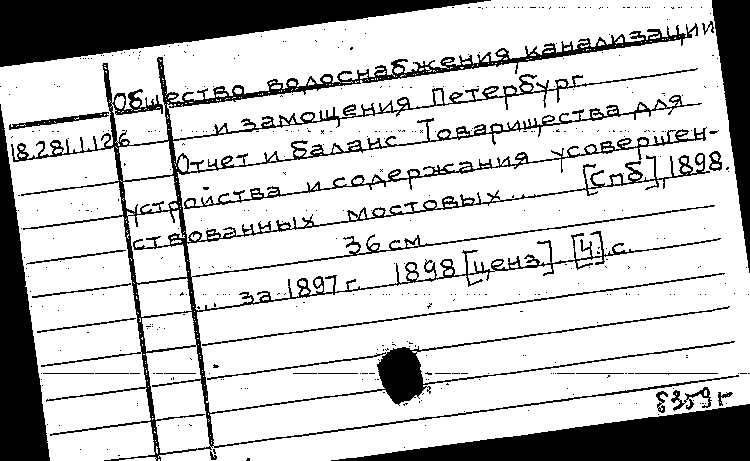 Общество водоснабжения, канализации
и замощения Петербург.
18.281.1.126
Отчет и баланс Товарищества для
устройства и содержания усовершен-
ствованных мостовых... [Спб.], 1898.
36 см
... за 1897 г. 1898 [ценз.]. [4] с.